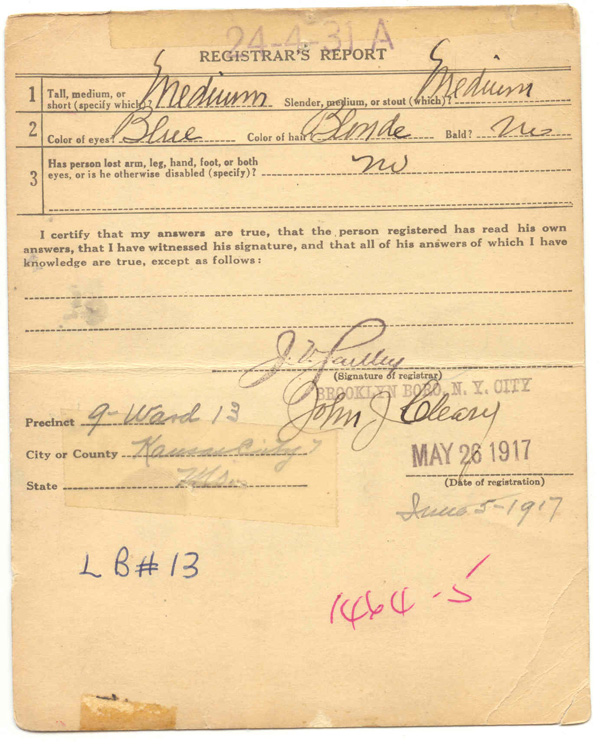 24-4-31 A
REGISTRAR'S REPORT
1 Tall, medium, or short (specify which)? Medium Slender, medium, or stout (which)? Medium
2 Color of eyes? Blue Color of hair? Blonde Bald? No
3 Has person lost arm, leg, hand, foot, or both
eyes, or is he otherwise disabled (specify)? no
I certify that my answers are true, that the person registered has read his own
answers, that I have witnessed his signature, and that all of his answers of which I have
knowledge are true, except as follows:
J. V.
(Signature of registrar)
BROOKLYN BORO, N. Y. CITY
John J Cleary
Precinct 9- Ward 13
City or County Kansas City
State Mo.
MAY 26 1917
(Date of registration)
June 5-1917
LB#13
1464-5